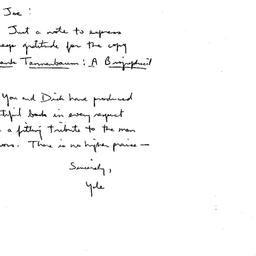 Joe:
Just a note to express
gratitude for the copy
Tannenbaum: A Biographical
You and Dick have produced
book in every respect
a fitting tribute to the man
There is no higher praise—
Sincerely,